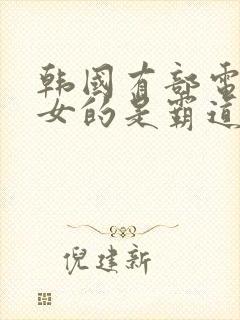 韩國有部電
女的是霸道
倪建新